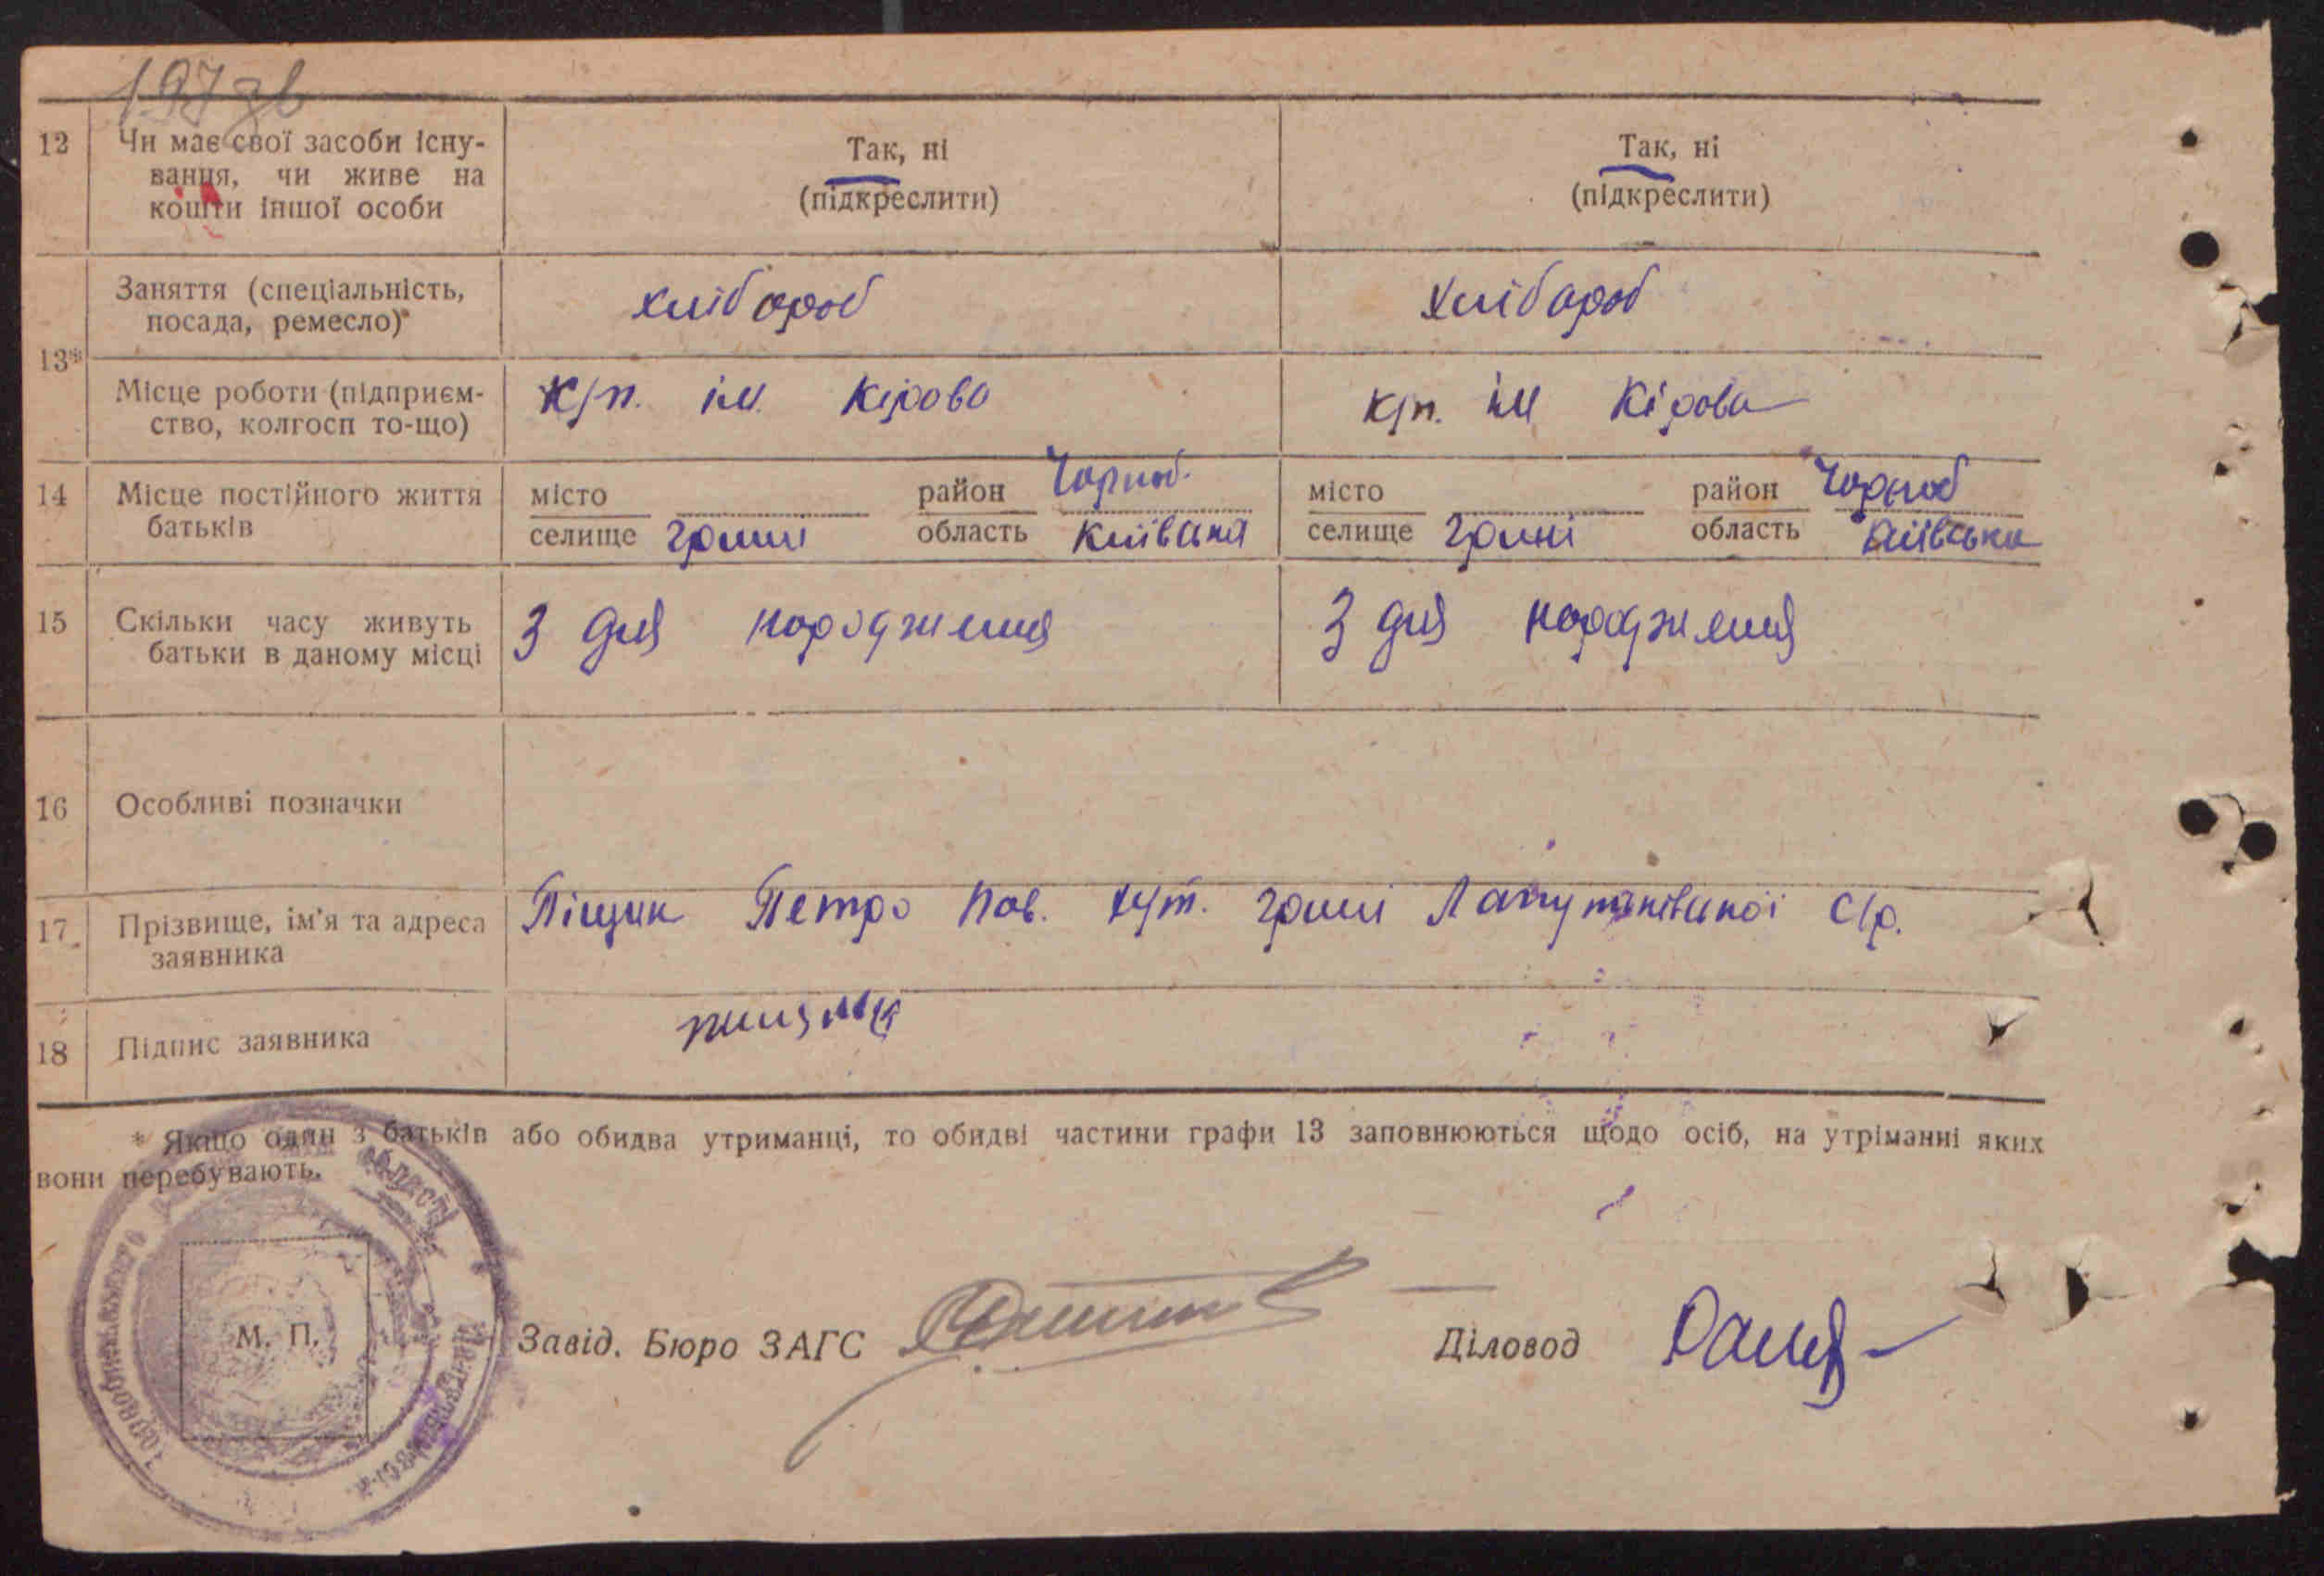 197 зв
12 Чи має свої засоби існу-
вання, чи живе на
кошти іншої особи
Так, ні
(підкреслити)
Так, ні
(підкреслити)
13*
Заняття (спеціальність,
посада, ремесло)
хлібороб
хлібороб
Місце роботи (підприєм-
ство, колгосп то-що)
К/п. ім. Кірова
К/п. ім Кірова
14 Місце постійного життя
батьків
місто
селище грині
район Чорноб.
область Київська
місто
селище грині
район Чорноб
область Київська
15 Скільки часу живуть
батьки в даному місці
З дня народження
З дня народження
16 Особливі позначки
17 Прізвище, ім'я та адреса
заявника
Піщик Петро Пав. хут. грині С/р.
18 Підпис заявника
* Якщо один з батьків або обидва утриманці, то обидві частини графи 13 заповнюються щодо осіб, на утріманні яких
вони перебувають.
М. П.
Завід. Бюро ЗАГС
Діловод